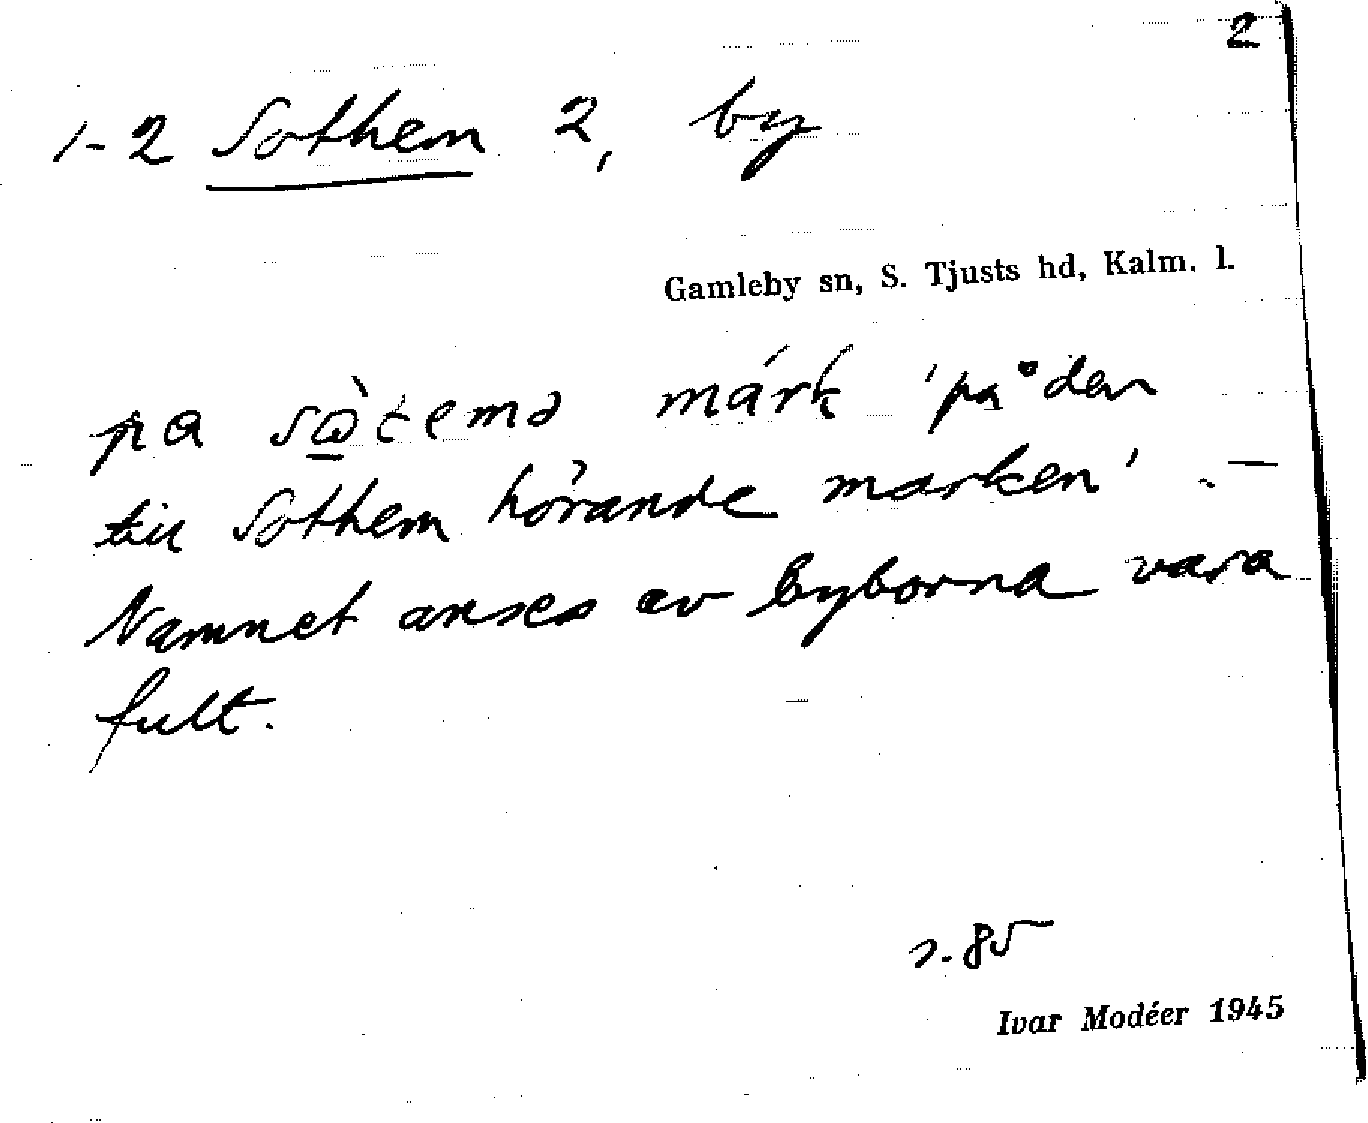 2
1-2 Sothem 2, by
Gamleby sn, S. Tjusts hd, Kalm. l.
pa sὼ̲temə márk 'på den
till Sothem hörande marken'. —
Namnet anses av byborna vara
fult.
s. 85
Ivar Modéer 1945